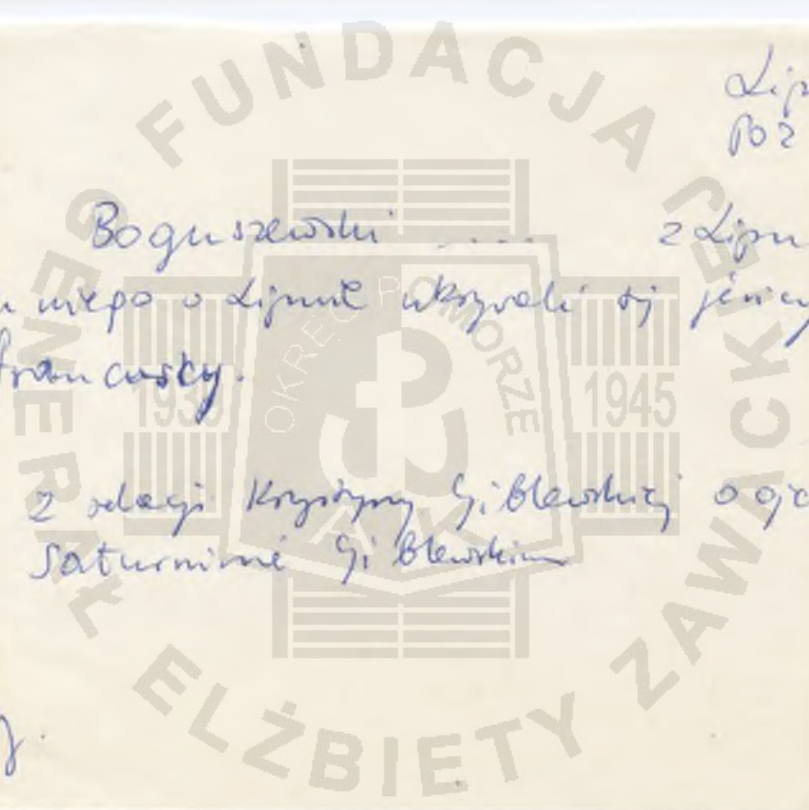 Lip
poz
Boguszewski .... z Lipn
u niego w Lipnie ukrywali się jeńcy
francuscy.
z relacji Krystyny Giblewskiej o ojc
Saturninie Giblewskim
FUNDACJA
GENERAŁ ELŻBIETY ZAWACKIEJ
OKRĘG POMORZE
1939 1945
AK